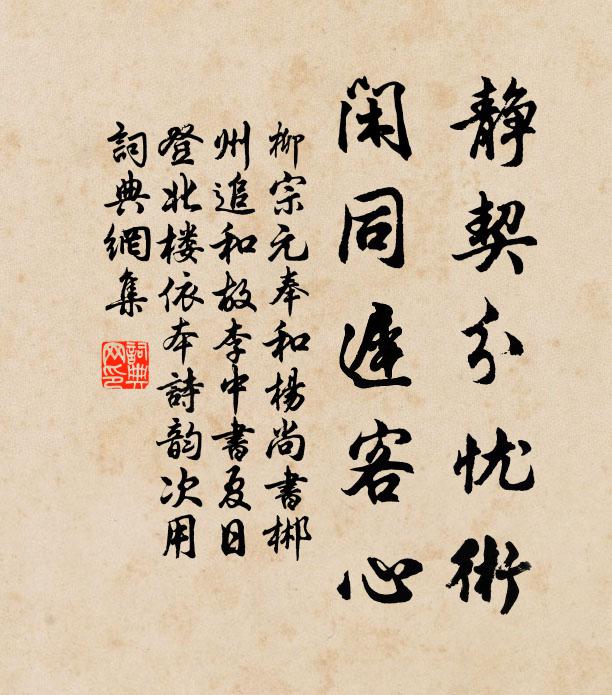 静契分忧術
闲同迟客心
柳宗元奉和楊尚書郴
州追和故李中書夏日
登北楼依本詩韵次用
詞典網集
詞典
网印